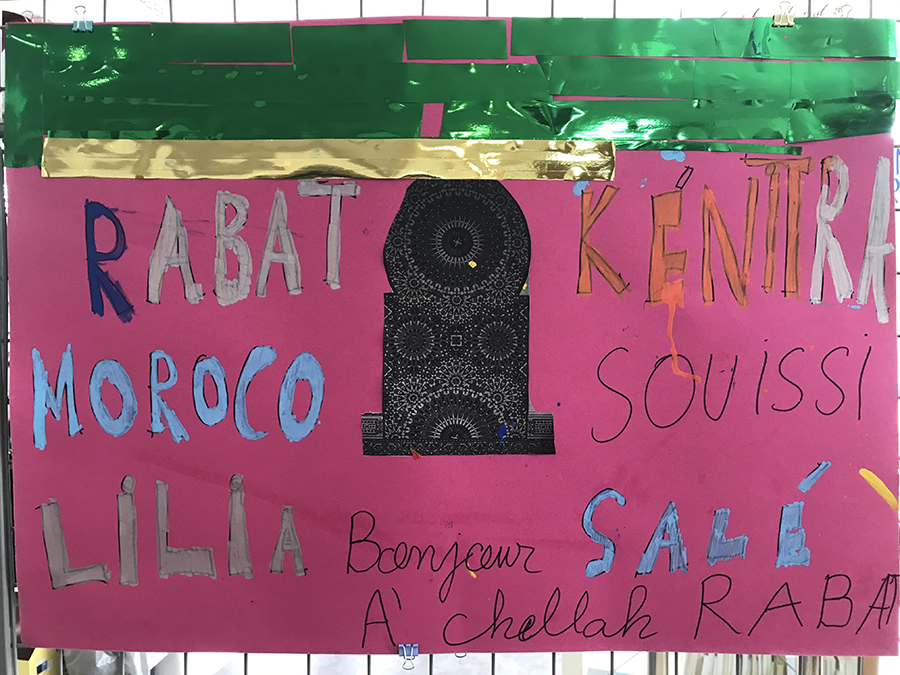 RABAT
KÉNITRA
MOROCO
SOUISSI
LILIA
Bonjour
SALÉ
A' chellah RABAT